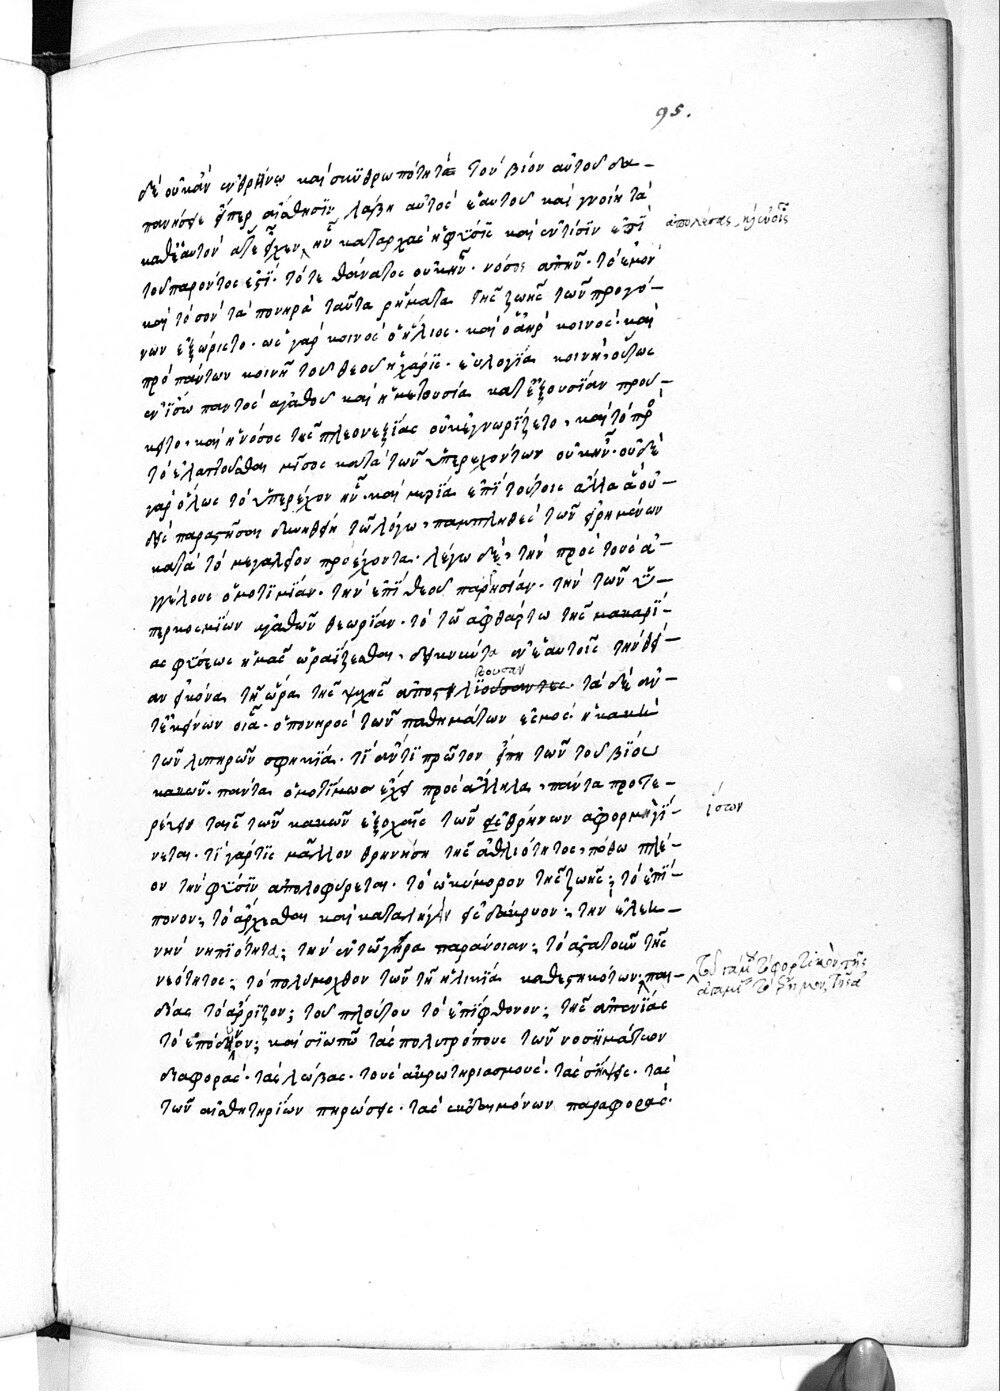 95.
δὲ οὐκ ἂν ἐν θρήνῳ καὶ σκυθρωπότητα τὸν βίον αὐτοῦ δα-
πανήσειε εἴπερ αἴσθησιν λάβῃ αὐτὸς ἑαυτοῦ καὶ γνοίη τὰ
καθ' ἑαυτὸν ἅτε ἔχεν ἣν καταρχὰς ἡ φύσις καὶ ἐν τίσιν ἐπὶ
ἀπολέσας, ἡ φύσις
τοῦ παρόντος ἐστί· τότε θάνατος οὐκ ἦν· νόσος ἀπῆν· τὸ ἐμὸν
καὶ τὸ σὸν τὰ πονηρὰ ταῦτα ῥήματα τῆς ζωῆς τῶν προγό-
νων ἐξώριστο· ὡς γὰρ κοινὸς ὁ ἥλιος· καὶ ὁ ἀὴρ κοινὸς· καὶ
πρὸ πάντων κοινὴ τοῦ θεοῦ ἡ χάρις· εὐλογία κοινή· οὕτως
ἐν ἴσῳ παντὸς ἀγαθοῦ καὶ ἡ μετουσία κατ' ἐξουσίαν προὐ-
κειτο· καὶ ἡ νόσος τῆς πλεονεξίας οὐκ ἐγνωρίζετο· καὶ τὸ πρὸ
τὸ ἐλαττοῦσθαι μῖσος κατὰ τῶν ὑπερεχόντων οὐκ ἦν· οὐδὲ
γὰρ ὅλως τὸ ὑπερέχον ἦν· καὶ μυρία ἐπὶ τούτοις ἄλλα ἃ οὐ-
δεὶς παραστῆσαι δυνηθείη τῷ λόγῳ· παμπληθὲς τῶν εἰρημένων
κατὰ τὸ μεγαλεῖον προέχοντα· λέγω δὲ, τὴν πρὸς τοὺς ἀγ-
γέλους ὁμοτιμίαν· τὴν ἐπὶ θεοῦ παρρησίαν· τὴν τῶν ὑ-
περκοσμίων ἀγαθῶν θεωρίαν· τὸ τῷ ἀφθάρτῳ τῆς μακαρί-
ας φύσεως ἡμᾶς ὡραΐζεσθαι· δεικνύντα ἐν ἑαυτοῖς τὴν θεί-
αν εἰκόνα τῇ ὥρᾳ τῆς ψυχῆς ἀποστίλβουσαν· τὰ δὲ ἀν-
τ' ἐκείνων οἷα· ὁ πονηρὸς τῶν παθημάτων ἑσμός· ἡ κακὴ
τῶν λυπηρῶν σφηκιά· τί ἄν τι πρῶτον εἴπῃ τῶν τοῦ βίου
κακῶν· πάντα ὁμοτίμως ἔχει πρὸς ἄλληλα· πάντα προτε-
ρεύει ταῖς τῶν κακῶν ἐξοχαῖς τῶν εἰς θρήνων ἀφορμὴ γί-
ἴστων
νεται· τί γάρ τις μᾶλλον θρηνήσῃ τῆς ἀθλιότητος· πόθῳ πλέ-
ον τὴν φύσιν ἀπολοφύρεται· τὸ ὠκύμορον τῆς ζωῆς; τὸ ἐπί-
πονον; τὸ ἄρχεσθαι καὶ καταλήγειν εἰς δάκρυον; τὴν ἐλεει-
νὴν νηπιότητα; τὴν ἐν τῷ γήρᾳ παράνοιαν; τὸ ἄστατον τῆς
νεότητος; τὸ πολύμοχθον τῶν τῇ ἡλικίᾳ καθεστηκότων· παι-
τοῦ γάμου τὸ φορτικὸν τῆς
ἀγαμίας τὸ ἔρημον, τῆς
δίας τὸ ἄρριζον; τοῦ πλούτου τὸ ἐπίφθονον; τῆς ἀπενίας
τὸ ἐπόδυνον; καὶ σιωπῶ τὰς πολυτρόπους τῶν νοσημάτων
διαφοράς· τὰς λώβας· τοὺς ἀκρωτηριασμούς· τὰς σήψεις· τὰς
τῶν αἰσθητηρίων πηρώσεις· τὰς ἐκ δαιμόνων παραφοράς·